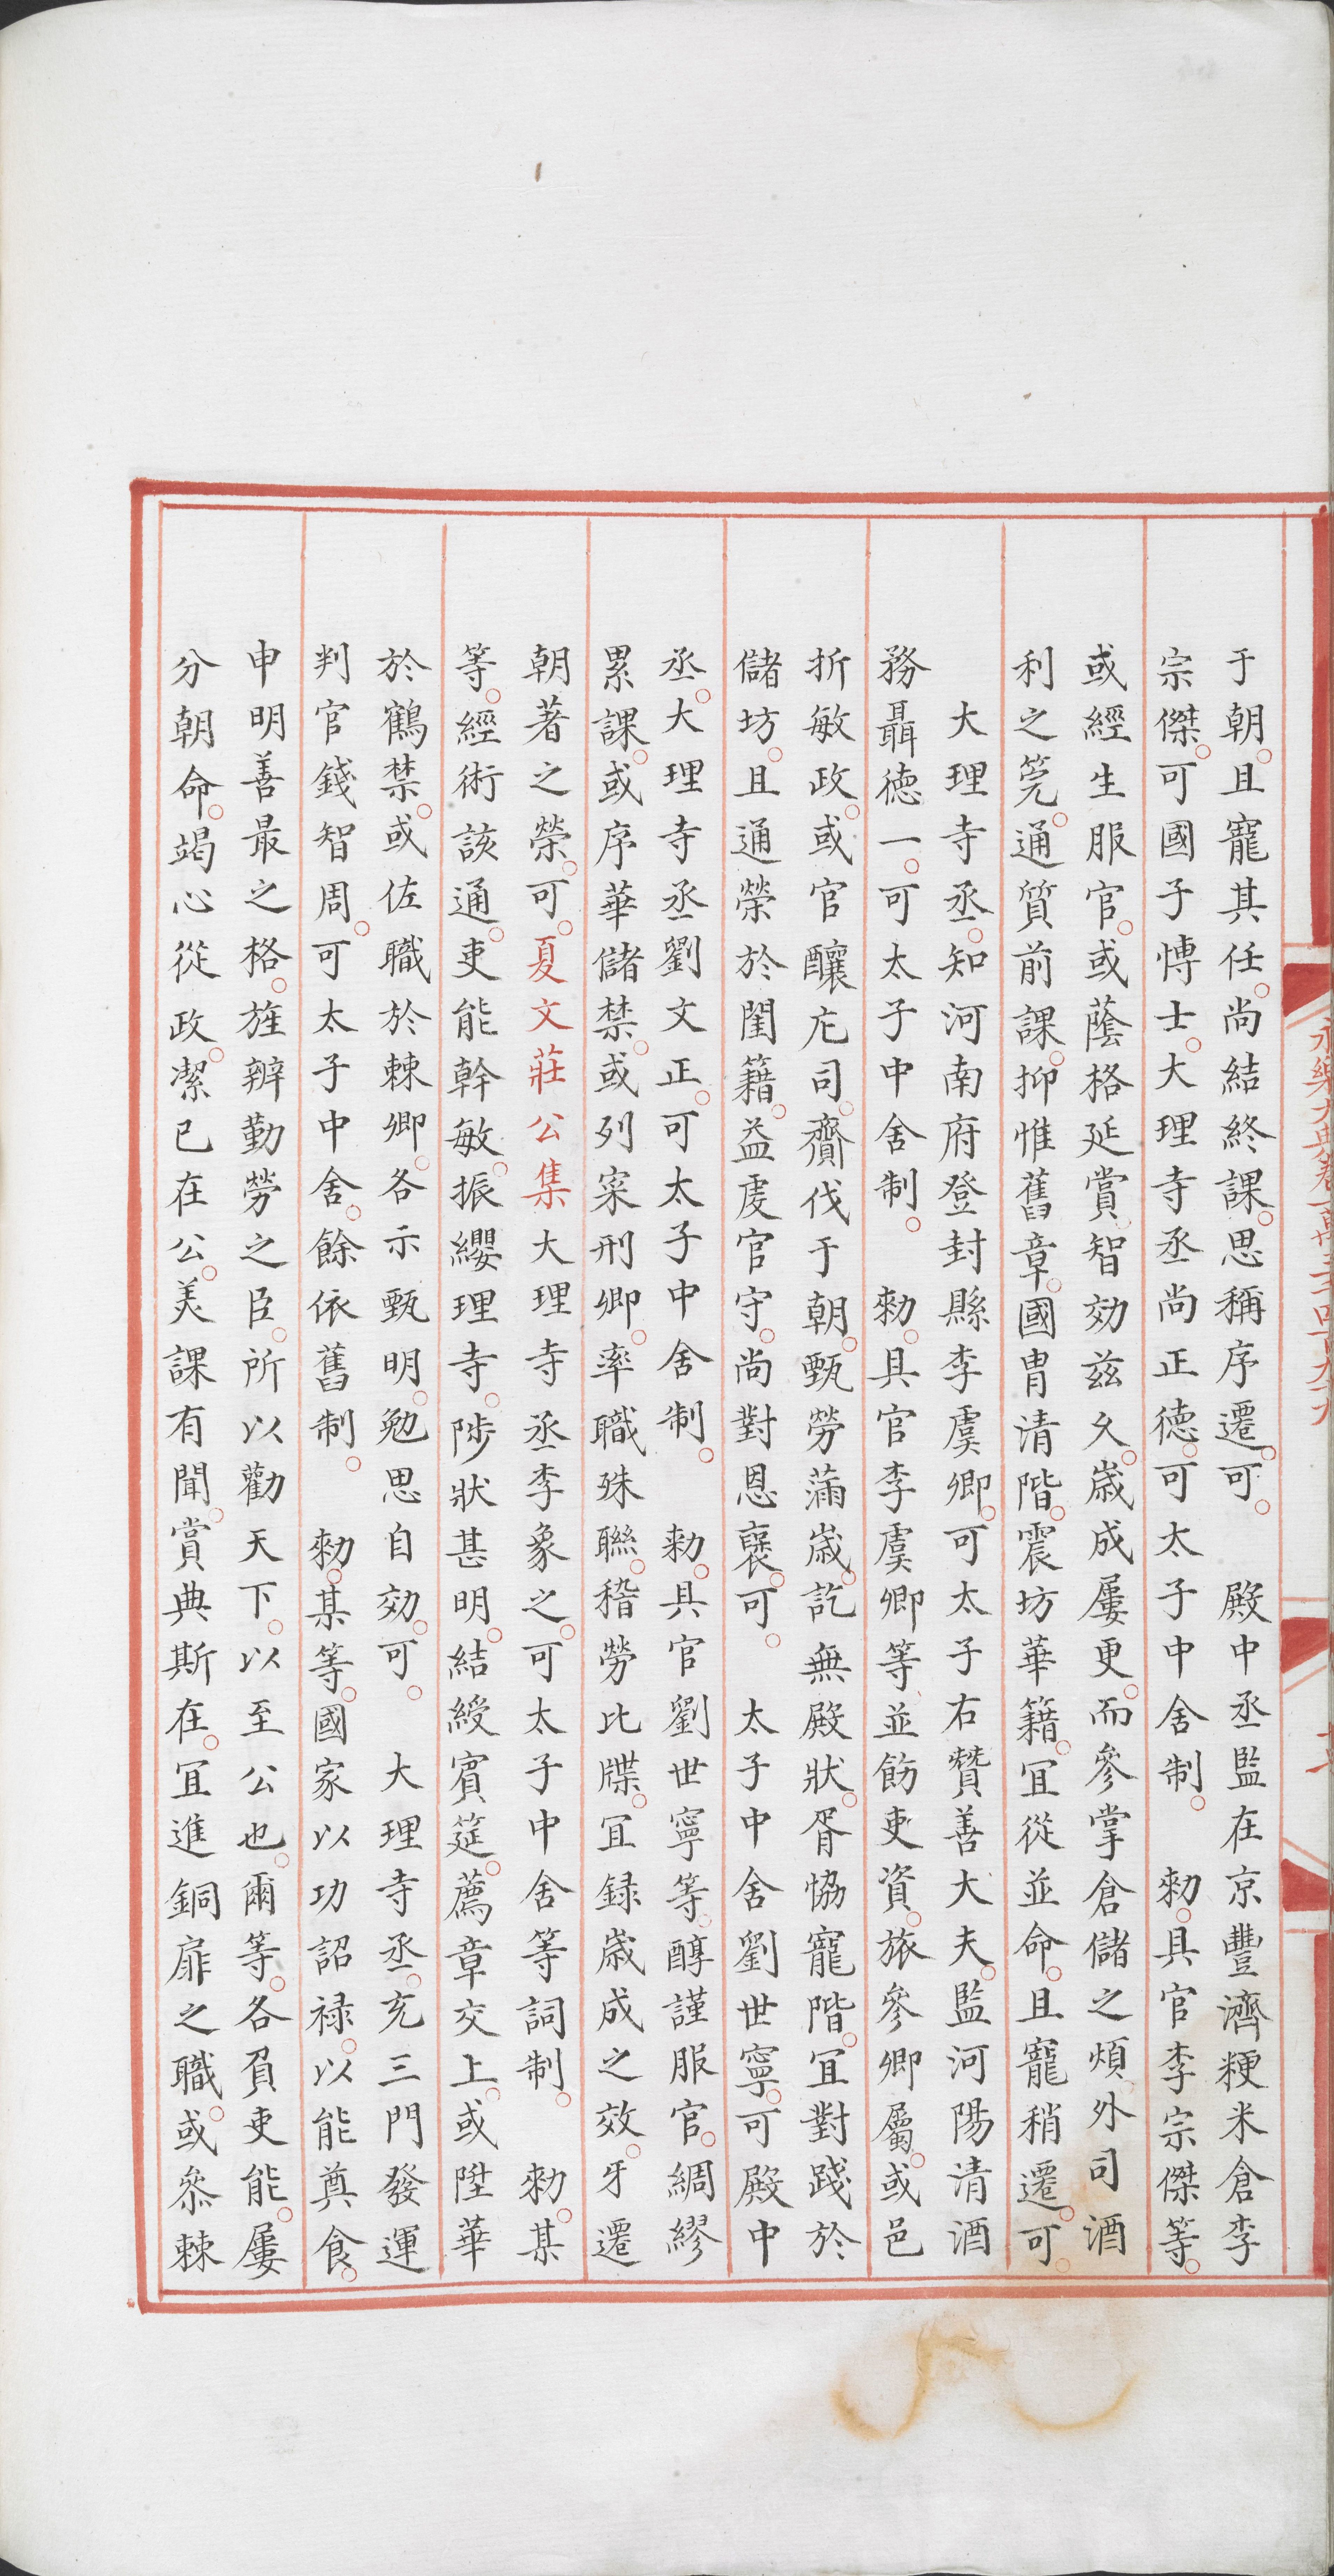 于朝。且寵其任。尚結終課。思稱序遷。可。　殿中丞監在京豐濟粳米倉李
宗傑。可國子博士。大理寺丞尚正德。可太子中舍制。　勑。具官李宗傑等。
或經生服官。或蔭格延賞。智効兹久。歲成屢更。而參掌倉儲之煩。外司酒
利之筦。通質前課。抑惟舊章。國胄清階。震坊華籍。冝從並命。且寵稍遷。可。
　大理寺丞。知河南府登封縣李虞卿。可太子右贊善大夫。監河陽清酒
務聶德一。可太子中舍制。　勑。具官李虞卿等並飭吏資。旅參卿屬。或邑
折敏政。或官釀庀司。齎伐于朝。甄勞滿歲。訖無殿狀。胥恊寵階。冝對踐於
儲坊。且通榮於閨籍。益虔官守。尚對恩襃。可。　太子中舍劉世寧。可殿中
丞。大理寺丞劉文正。可太子中舍制。　勑。具官劉世寧等。醇謹服官。綢繆
累課。或序華儲禁。或列寀刑卿。率職殊聯。稽勞比牒。冝録歲成之效。牙遷
朝著之榮。可。夏文莊公集大理寺丞李象之。可太子中舍等詞制。　勑。某
等。經術該通。吏能幹敏。振纓理寺。陟狀甚明。結綬賓筵。薦章交上。或陞華
於鶴禁。或佐職於棘卿。各示甄明。勉思自効。可。　大理寺丞。充三門發運
判官錢智周。可太子中舍。餘依舊制。　勑。某等。國家以功詔禄。以能奠食。
申明善最之格。旌辨勤勞之臣。所以勸天下。以至公也。爾等。各負吏能。屢
分朝命。竭心從政。潔已在公。美課有聞。賞典斯在。冝進銅扉之職。或叅棘